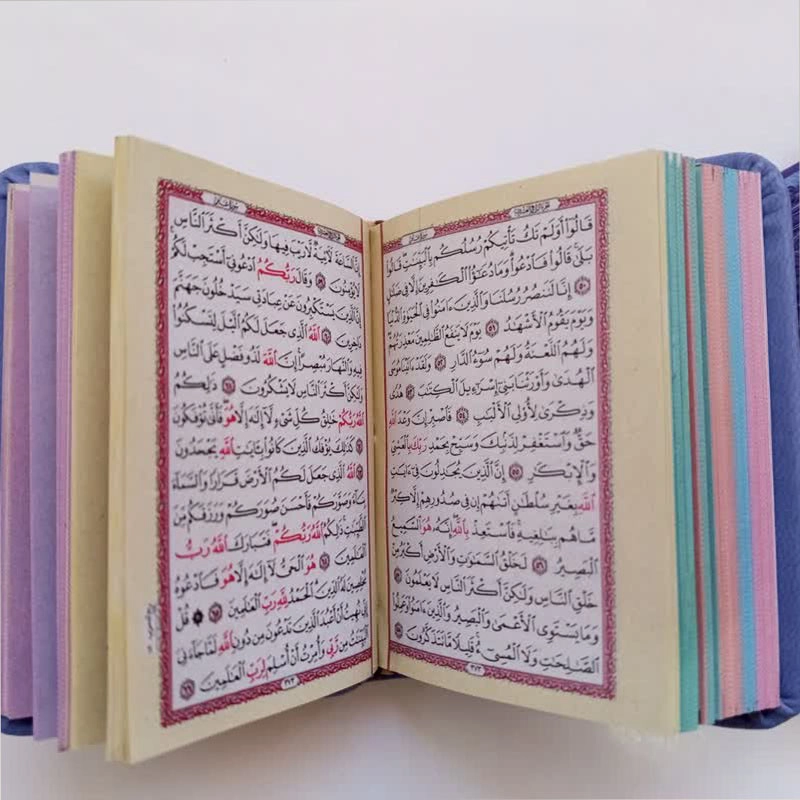 قَالُوٓاْ أَوَلَمْ تَكُ تَأْتِيكُمْ رُسُلُكُم بِٱلْبَيِّنَٰتِ قَالُواْ
بَلَىٰ قَالُواْ فَٱدْعُواْ وَمَا دُعَٰٓؤُاْ ٱلْكَٰفِرِينَ إِلَّا فِى ضَلَٰلٍ
٥٠ إِنَّا لَنَنصُرُ رُسُلَنَا وَٱلَّذِينَ ءَامَنُواْ فِى ٱلْحَيَوٰةِ ٱلدُّنْيَا
وَيَوْمَ يَقُومُ ٱلْأَشْهَٰدُ ٥١ يَوْمَ لَا يَنفَعُ ٱلظَّٰلِمِينَ مَعْذِرَتُهُمْ
وَلَهُمُ ٱللَّعْنَةُ وَلَهُمْ سُوٓءُ ٱلدَّارِ ٥٢ وَلَقَدْ ءَاتَيْنَا مُوسَى
ٱلْهُدَىٰ وَأَوْرَثْنَا بَنِىٓ إِسْرَٰٓءِيلَ ٱلْكِتَٰبَ ٥٣ هُدًى
وَذِكْرَىٰ لِأُوْلِى ٱلْأَلْبَٰبِ ٥٤ فَٱصْبِرْ إِنَّ وَعْدَ ٱللَّهِ
حَقٌّ وَٱسْتَغْفِرْ لِذَنۢبِكَ وَسَبِّحْ بِحَمْدِ رَبِّكَ بِٱلْعَشِىِّ
وَٱلْإِبْكَٰرِ ٥٥ إِنَّ ٱلَّذِينَ يُجَٰدِلُونَ فِىٓ ءَايَٰتِ
ٱللَّهِ بِغَيْرِ سُلْطَٰنٍ أَتَىٰهُمْ إِن فِى صُدُورِهِمْ إِلَّا كِبْرٌ
مَّا هُم بِبَٰلِغِيهِ فَٱسْتَعِذْ بِٱللَّهِ إِنَّهُۥ هُوَ ٱلسَّمِيعُ
ٱلْبَصِيرُ ٥٦ لَخَلْقُ ٱلسَّمَٰوَٰتِ وَٱلْأَرْضِ أَكْبَرُ مِنْ
خَلْقِ ٱلنَّاسِ وَلَٰكِنَّ أَكْثَرَ ٱلنَّاسِ لَا يَعْلَمُونَ ٥٧
وَمَا يَسْتَوِى ٱلْأَعْمَىٰ وَٱلْبَصِيرُ وَٱلَّذِينَ ءَامَنُواْ وَعَمِلُواْ
ٱلصَّٰلِحَٰتِ وَلَا ٱلْمُسِىٓءُ قَلِيلًا مَّا تَتَذَكَّرُونَ ٥٨
إِنَّ ٱلسَّاعَةَ لَءَاتِيَةٌ لَّا رَيْبَ فِيهَا وَلَٰكِنَّ أَكْثَرَ ٱلنَّاسِ
لَا يُؤْمِنُونَ ٥٩ وَقَالَ رَبُّكُمُ ٱدْعُونِىٓ أَسْتَجِبْ لَكُمْ
إِنَّ ٱلَّذِينَ يَسْتَكْبِرُونَ عَنْ عِبَادَتِى سَيَدْخُلُونَ جَهَنَّمَ
دَاخِرِينَ ٦٠ ٱللَّهُ ٱلَّذِى جَعَلَ لَكُمُ ٱلَّيْلَ لِتَسْكُنُواْ
فِيهِ وَٱلنَّهَارَ مُبْصِرًا إِنَّ ٱللَّهَ لَذُو فَضْلٍ عَلَى ٱلنَّاسِ
وَلَٰكِنَّ أَكْثَرَ ٱلنَّاسِ لَا يَشْكُرُونَ ٦١ ذَٰلِكُمُ
ٱللَّهُ رَبُّكُمْ خَٰلِقُ كُلِّ شَىْءٍ لَّآ إِلَٰهَ إِلَّا هُوَ فَأَنَّىٰ تُؤْفَكُونَ
٦٢ كَذَٰلِكَ يُؤْفَكُ ٱلَّذِينَ كَانُواْ بِـَٔايَٰتِ ٱللَّهِ يَجْحَدُونَ
٦٣ ٱللَّهُ ٱلَّذِى جَعَلَ لَكُمُ ٱلْأَرْضَ قَرَارًا وَٱلسَّمَآءَ
بِنَآءً وَصَوَّرَكُمْ فَأَحْسَنَ صُوَرَكُمْ وَرَزَقَكُم مِّنَ
ٱلطَّيِّبَٰتِ ذَٰلِكُمُ ٱللَّهُ رَبُّكُمْ فَتَبَارَكَ ٱللَّهُ رَبُّ
ٱلْعَٰلَمِينَ ٦٤ هُوَ ٱلْحَىُّ لَآ إِلَٰهَ إِلَّا هُوَ فَٱدْعُوهُ
مُخْلِصِينَ لَهُ ٱلدِّينَ ٱلْحَمْدُ لِلَّهِ رَبِّ ٱلْعَٰلَمِينَ ٦٥ قُلْ
إِنِّى نُهِيتُ أَنْ أَعْبُدَ ٱلَّذِينَ تَدْعُونَ مِن دُونِ ٱللَّهِ لَمَّا جَآءَنِىَ
ٱلْبَيِّنَٰتُ مِن رَّبِّى وَأُمِرْتُ أَنْ أُسْلِمَ لِرَبِّ ٱلْعَٰلَمِينَ ٦٦